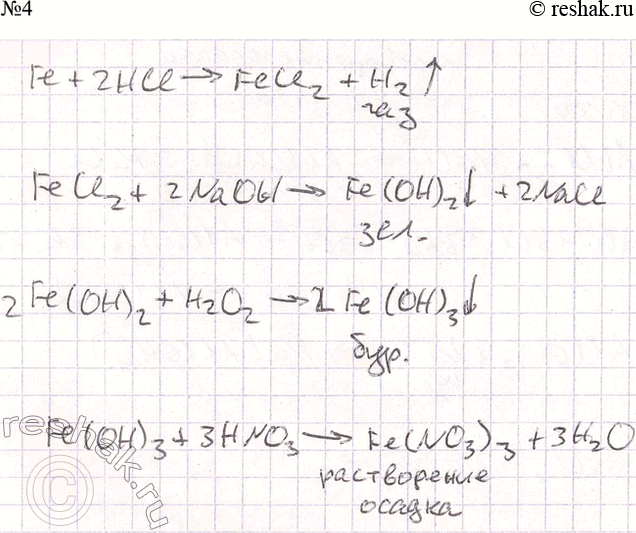 №4
© reshak.ru
Fe + 2HCl → FeCl₂ + H₂ ↑
газ
FeCl₂ + 2NaOH → Fe(OH)₂↓ + 2NaCl
зел.
2Fe(OH)₂ + H₂O₂ → 2Fe(OH)₃↓
бур.
Fe(OH)₃ + 3HNO₃ → Fe(NO₃)₃ + 3H₂O
растворение
осадка
reshak.ru
©